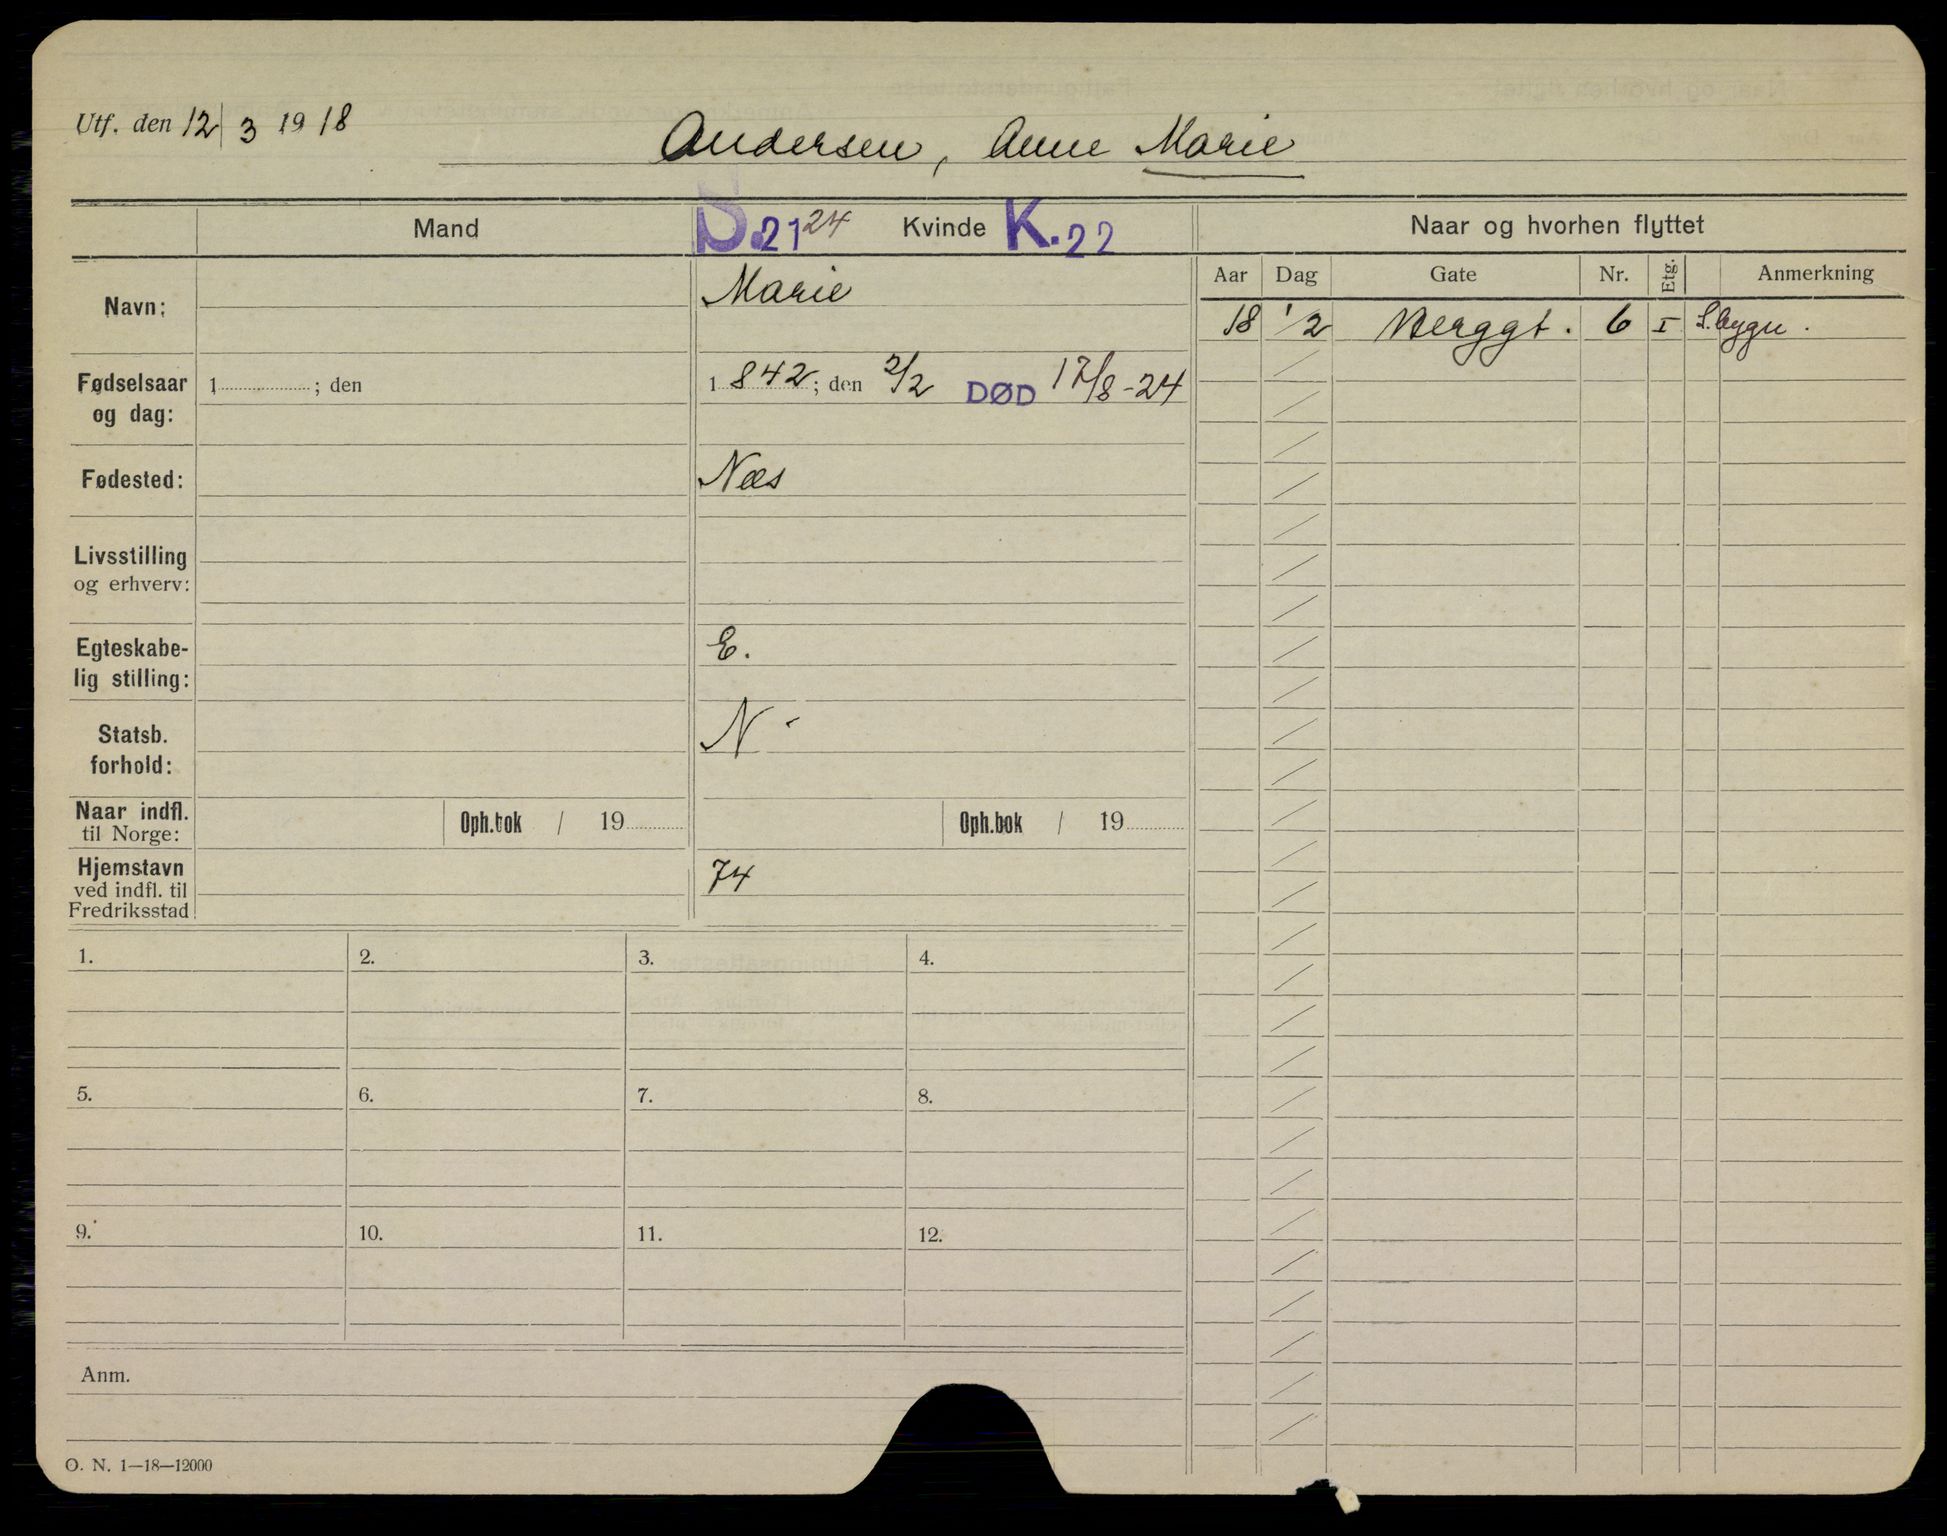 Utf. den 12/3 1918
Andersen, Anne Marie
Mand
S.21 24 Kvinde K.22
Naar og hvorhen flyttet
Aar Dag Gate Nr. Etg. Anmerkning
18 1/2 Berggt. 6 I S.bygn.
Navn:
Marie
Fødselsaar og dag:
1 ; den
1842; den 2/2 DØD 17/8-24
Fødested:
Næs
Livsstilling
og erhverv:
Egteskabe-
lig stilling:
E.
Statsb.
forhold:
N
Naar indfl.
til Norge:
Oph.bok / 19
Oph.bok / 19
Hjemstavn
ved indfl. til
Fredriksstad
74
1. 2. 3. 4.
5. 6. 7. 8.
9. 10. 11. 12.
Anm.
O. N. 1—18—12000